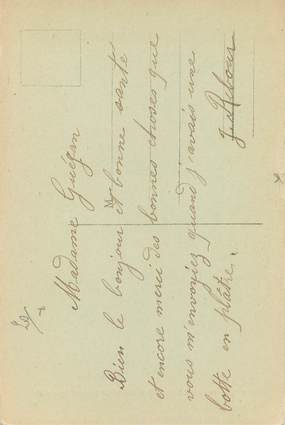 Madame Guégan
Bien le bonjour et bonne santé
et encore merci des bonnes choses que
vous m'envoyiez quand j'avais une
botte en plâtre.
J. Rebour